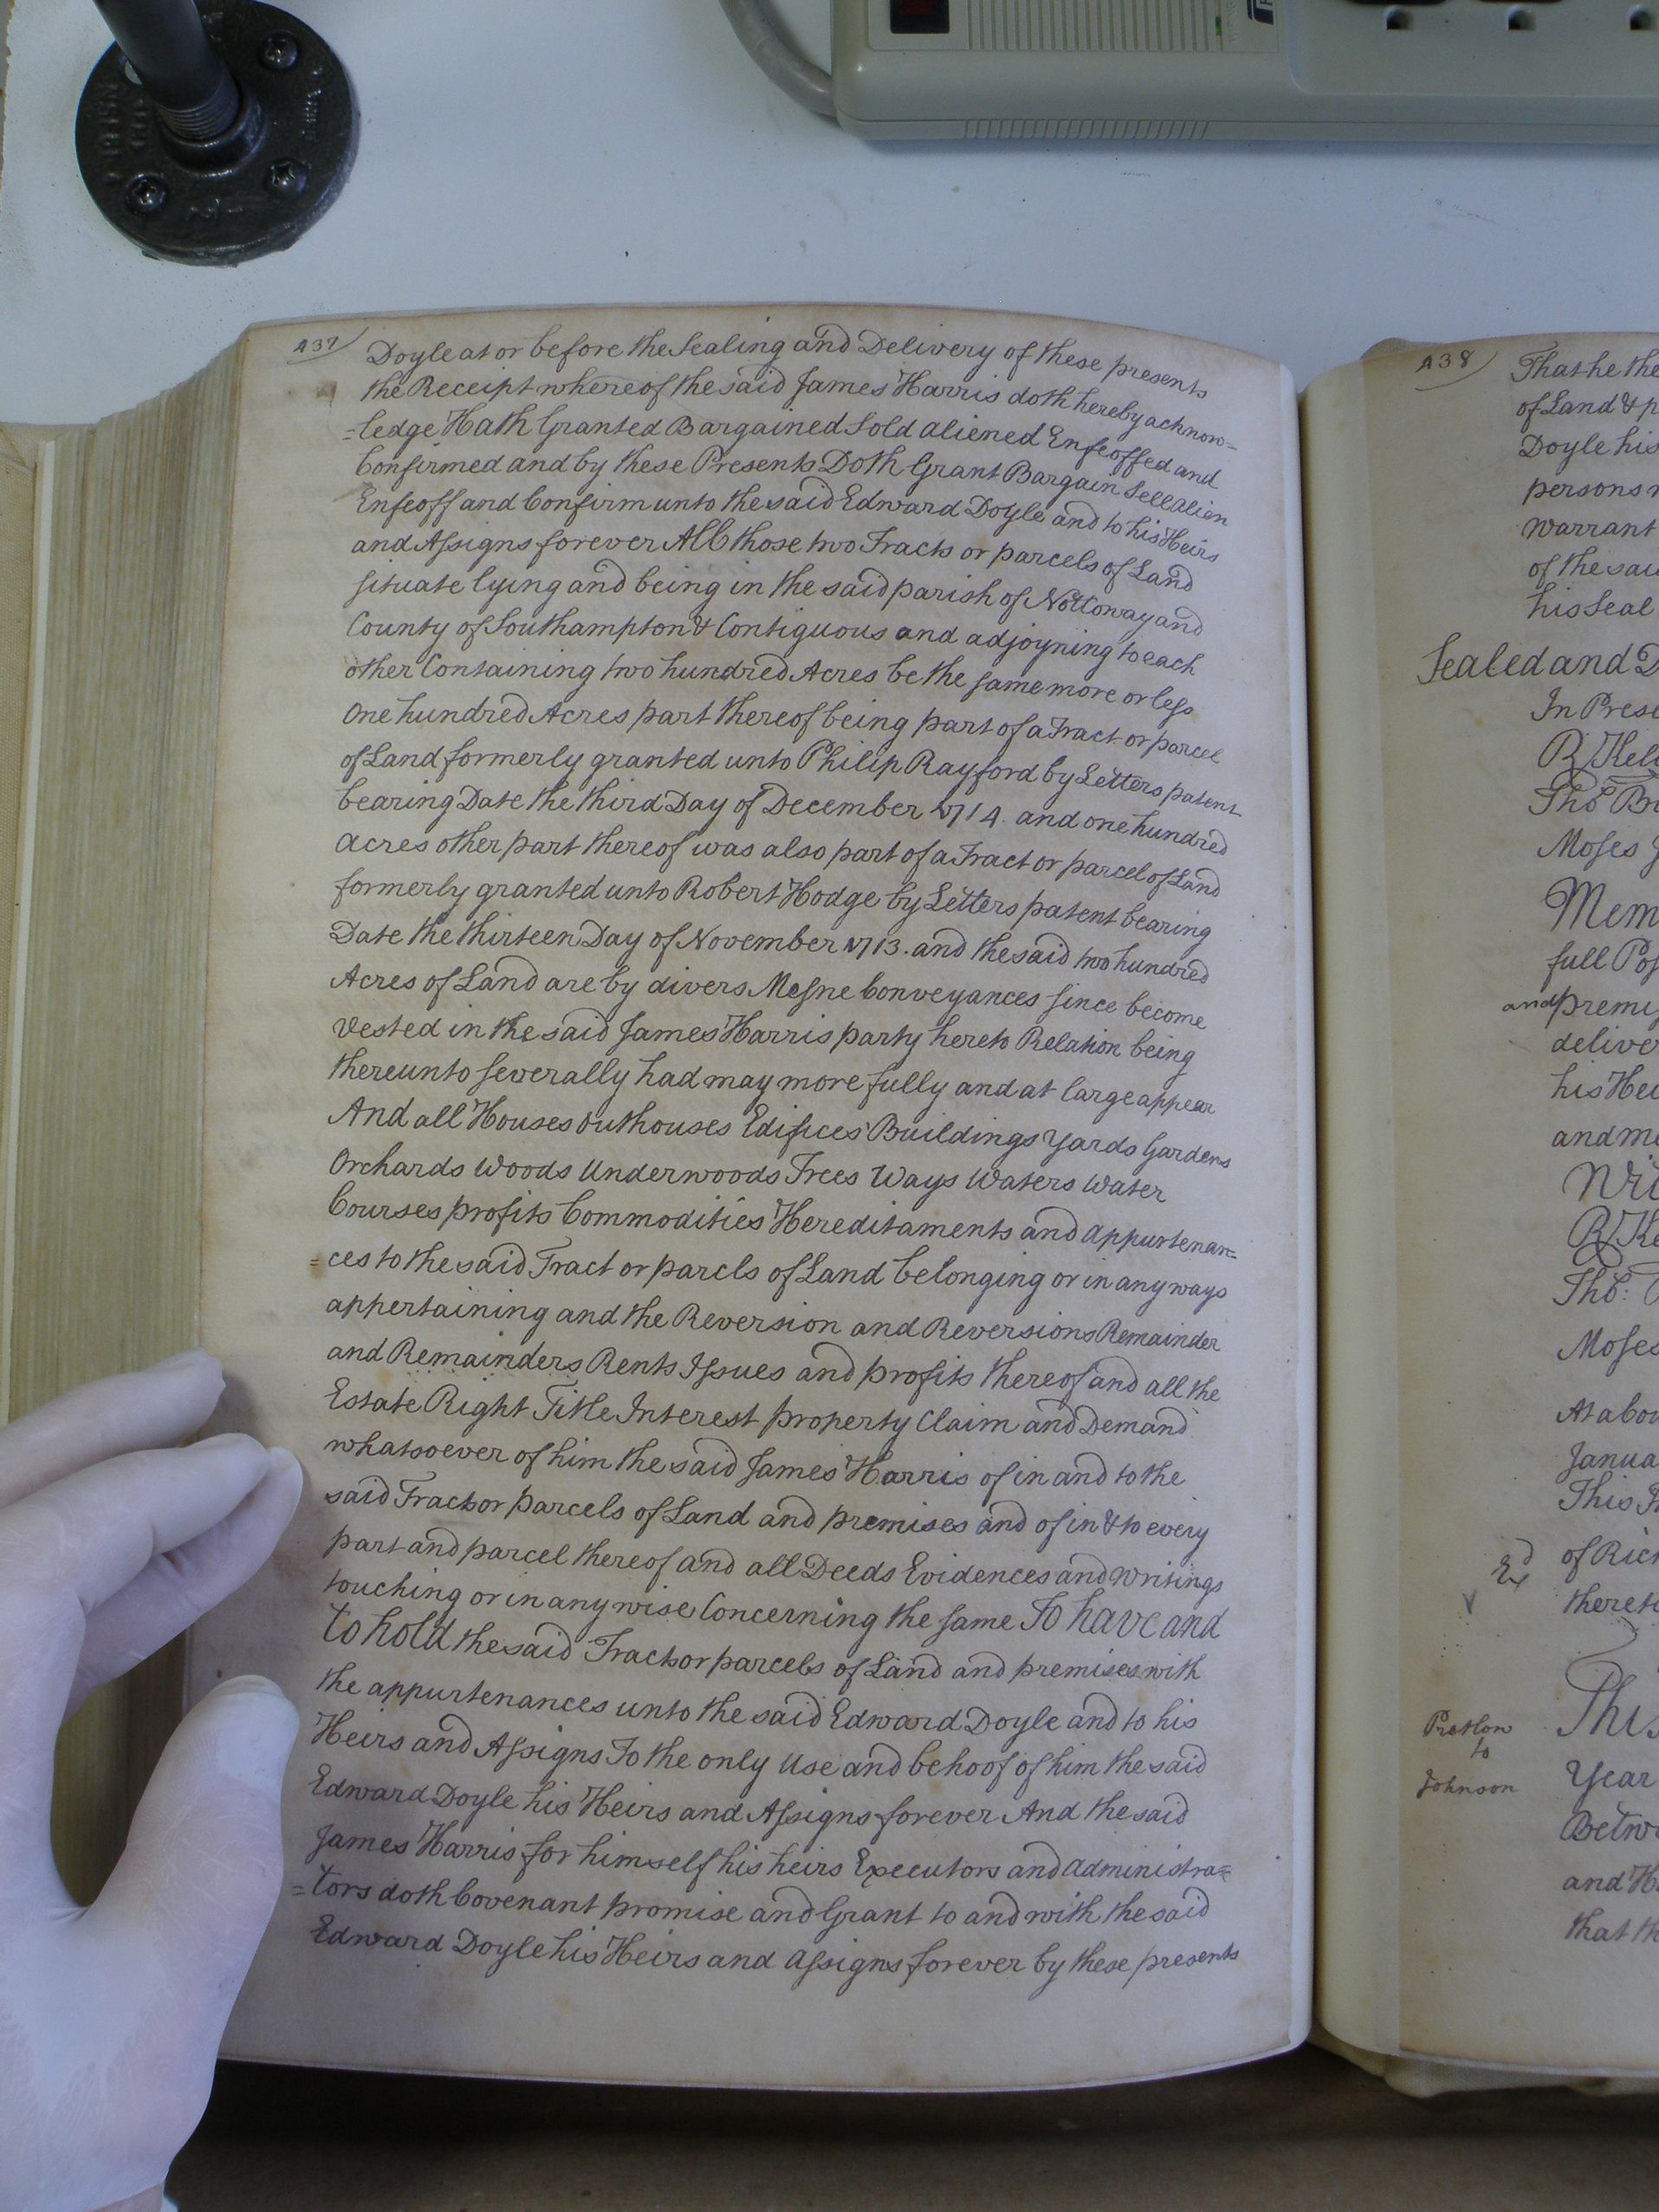 437
Doyle at or before the Sealing and Delivery of these presents
the Receipt whereof the said James Harris doth hereby acknow=
=ledge Hath Granted Bargained Sold aliened Enfeoffed and
Confirmed and by these Presents Doth Grant Bargain Sell alien
Enfeoff and Confirm unto the said Edward Doyle and to his Heirs
and Assigns forever All those two Tracts or parcels of Land
situate lying and being in the said parish of Nottoway and
County of Southampton & Contiguous and adjoyning to each
other Containing two hundred Acres be the same more or less
One hundred Acres part thereof being part of a Tract or parcel
of Land formerly granted unto Philip Rayford by Letters patent
bearing Date the third Day of December 1714. and one hundred
acres other part thereof was also part of a Tract or parcel of Land
formerly granted unto Robert Hodge by Letters patent bearing
Date the thirteen Day of November 1713. and the said two hundred
Acres of Land are by divers Mesne Conveyances since become
Vested in the said James Harris party hereto Relation being
thereunto severally had may more fully and at large appear
And all Houses Outhouses Edifices Buildings Yards Gardens
Orchards Woods Underwoods Trees Ways Waters Water
Courses profits Commodities Hereditaments and appurtenan=
=ces to the said Tract or parcls of Land belonging or in any ways
appertaining and the Reversion and Reversions Remainder
and Remainders Rents Issues and profits thereof and all the
Estate Right Title Interest property Claim and Demand
whatsoever of him the said James Harris of in and to the
said Tracts or parcels of Land and premises and of in & to every
part and parcel thereof and all Deeds Evidences and Writings
touching or in any wise Concerning the same To have and
to hold the said Tracts or parcels of Land and premises with
the appurtenances unto the said Edward Doyle and to his
Heirs and Assigns To the only Use and behoof of him the said
Edward Doyle his Heirs and Assigns forever And the said
James Harris for himself his heirs Executors and administra=
=tors doth Covenant promise and Grant to and with the said
Edward Doyle his Heirs and assigns forever by these presents
438
That he the
of Land & p
Doyle his
persons
warrant
of the sai
his Seal
Sealed and D
In Prese
R Kel
Tho Bu
Moses J
Mem
full Pos
and premis
delive
his Hei
and me
Wit
R Ke
Tho:
Moses
At a bou
Janua
This In
Ex^d of Rich
thereto
This
Pretlow
to
Johnson
Year
Betw
and H
that th